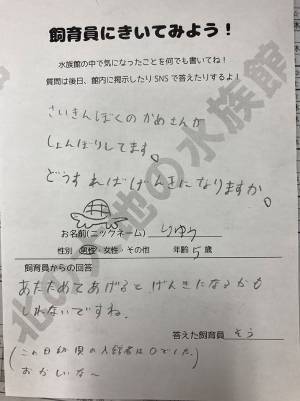 飼育員にきいてみよう！
水族館の中で気になったことを何でも書いてね！
質問は後日、館内に掲示したりSNSで答えたりするよ！
さいきんぼくのかめさんが
しょんぼりしてます。
どうすればげんきになりますか。
お名前(ニックネーム) りゅう
性別 男性・女性・その他 年齢 5 歳
飼育員からの回答
あたためてあげるとげんきになるかも
しれないですね。
答えた飼育員 そう
(この日幼児の入館者は0でした。
おかしいな〜
北の大地の水族館